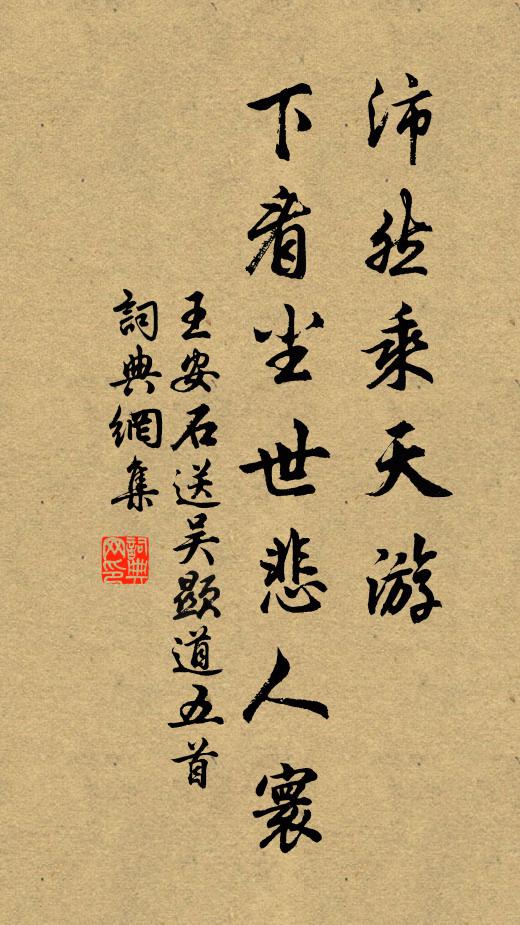 沛然乘天游
下看尘世悲人寰
王安石送吴顯道五首
詞典網集
詞典网印